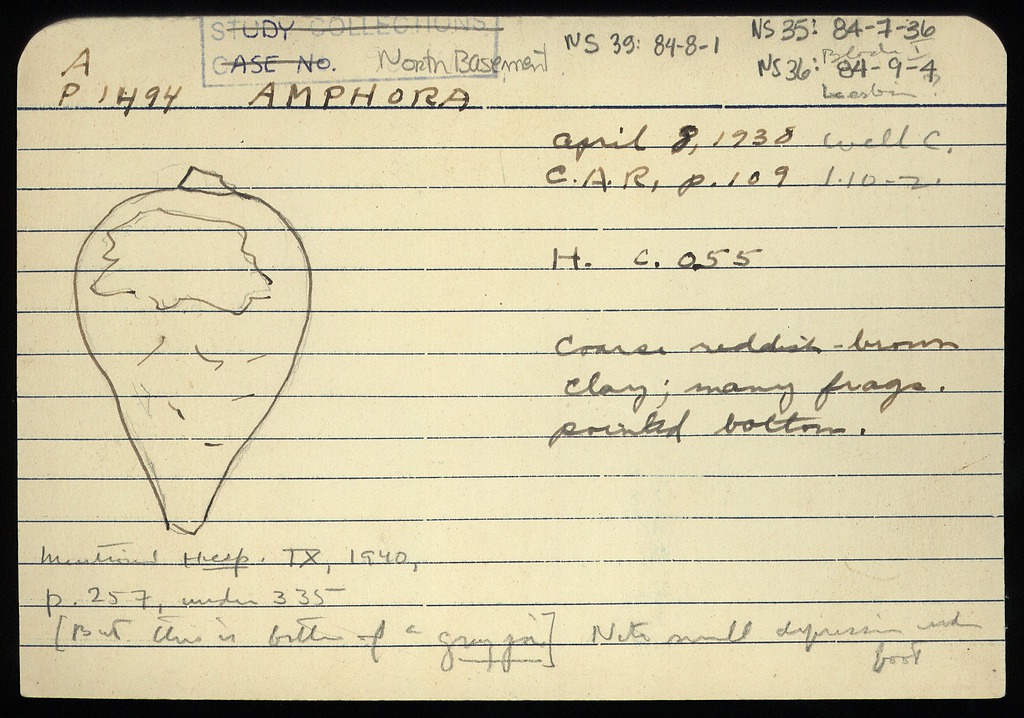 STUDY COLLECTIONS
CASE No. North Basement
NS 39: 84-8-1
NS 35: 84-7-36
NS 36: 84-9-4
A
P 1494 AMPHORA
April 8, 1938 Well C.
C.A.R, p. 109 1-10-2.
H. C. 0.55
Coarse reddish-brown
clay; many frags.
pointed bottom.
Mentioned Hesp. IX, 1940,
p. 257, under 335
[But this is bottom of a gray jar] Note small depression under
foot